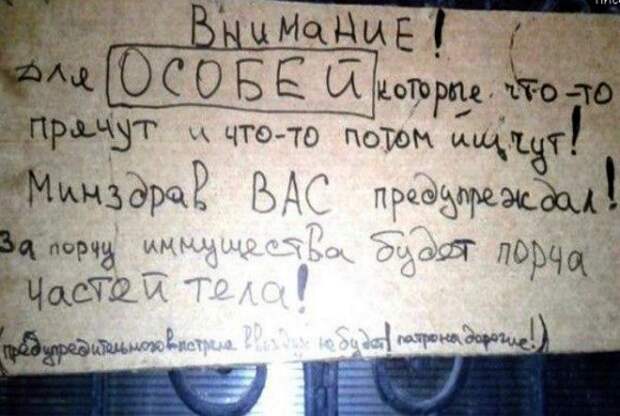 Внимание!
для ОСОБЕЙ которые что-то
прячут и что-то потом ищут!
Минздрав ВАС предупреждал!
За порчу иммущества будет порча
частей тела!
(предупредительного выстрела в воздух не будет! патроны дорогие!)